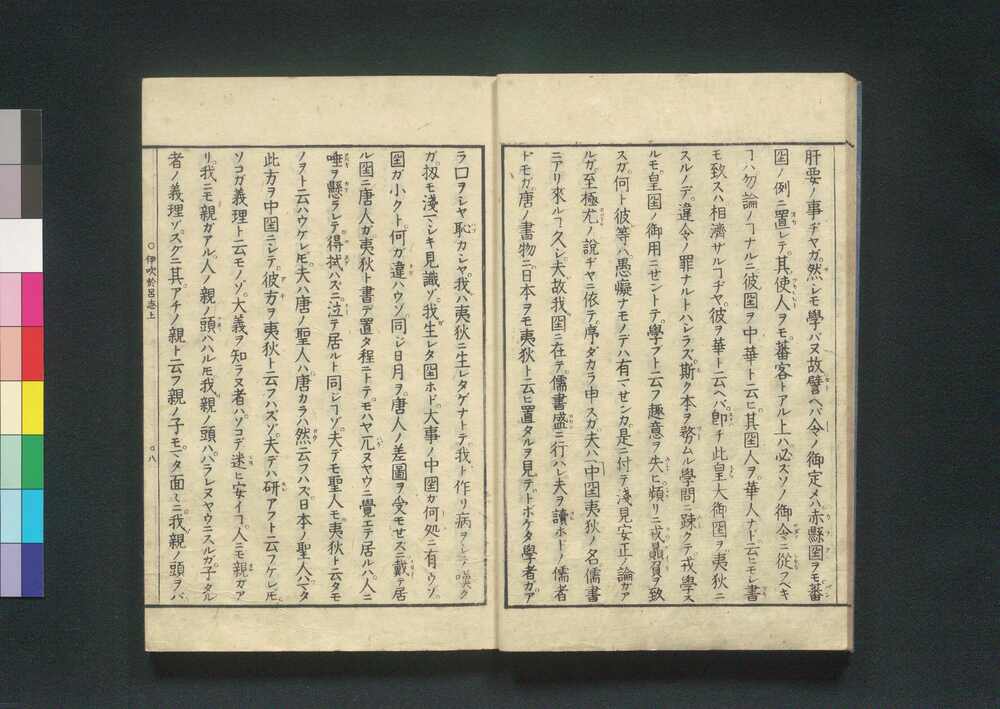 肝要ノ事ヂヤガ然シモ學バヌ故譬ヘバ令ノ御定メハ赤縣国ヲモ蕃
国ノ例ニ置レテ其使人ヲモ蕃客トアル上ハ必スソノ御令ニ從フベキ
ヿハ勿論ノヿナルニ彼国ヲ中華ト云ヒ其国人ヲ華人ナト云ヒモシ書
モ致スハ相濟サルヿヂヤ彼ヲ華ト云ヘバ即チ此皇大御国ヲ夷狄ニ
スルノデ違令ノ罪ナルトハシラズ斯ク本ヲ務ムル學問ニ疎クテ戎學ス
ルモ皇国ノ御用ニセントテ學ブト云フ趣意ヲ失ヒ頻リニ戎贔屓ヲ致
スガ何ト彼等ハ愚癡ナモノデハ有マせンカ是ニ付テ淺見安正ノ論ガア
ルガ至極尤ノ説ヂヤニ依テ序ダカラ申スガ夫ハ中国夷狄ノ名儒書
ニアリ來ルヿ久シ夫故我国ニ在テ儒書盛ニ行ハレ夫ヲ讀ホドノ儒者
ドモガ唐ノ書物ニ日本ヲモ夷狄ト云ヒ置タルヲ見テトボケタ學者ガア
ラ口ヲシヤ恥カシヤ我ハ夷狄ニ生レタゲナトテ我ト作リ病ヲシテ嘆ク
ガ扨モ淺マシキ見識ゾ我生レタ国ホド大事ノ中国ガ何処ニ有ウゾ
国ガ小クト何ガ違ハウゾ同シ日月ヲ唐人ノ差圖ヲ受モせズニ戴テ居
ル国ニ唐人ガ夷狄ト書デ置タ程ニトテモハヤ兀ヌヤウニ覺エテ居ルハ人ニ
唾ヲ懸ラレテ得拭ハズニ泣テ居ルト同シヿゾ夫デモ聖人モ夷狄ト云タモ
ノヲト云ハウケレ𪜈夫ハ唐ノ聖人ハ唐カラハ然云フハズ日本ノ聖人ハマタ
此方ヲ中国ニシテ彼方ヲ夷狄ト云フハズゾ夫デハ研アフト云フケレ𪜈
ソコガ義理ト云モノゾ大義ヲ知ラヌ者ハソコデ迷ヒ安イヿ人ニモ親ガア
リ我ニモ親ガアル人ノ親ノ頭ハハル𪜈我親ノ頭ハハラレヌヤウニスルガ子タル
者ノ義理ゾスグニ其アチノ親ト云フ親ノ子モマタ面々ニ我親ノ頭ヲバ
○伊吹於呂志上
○八